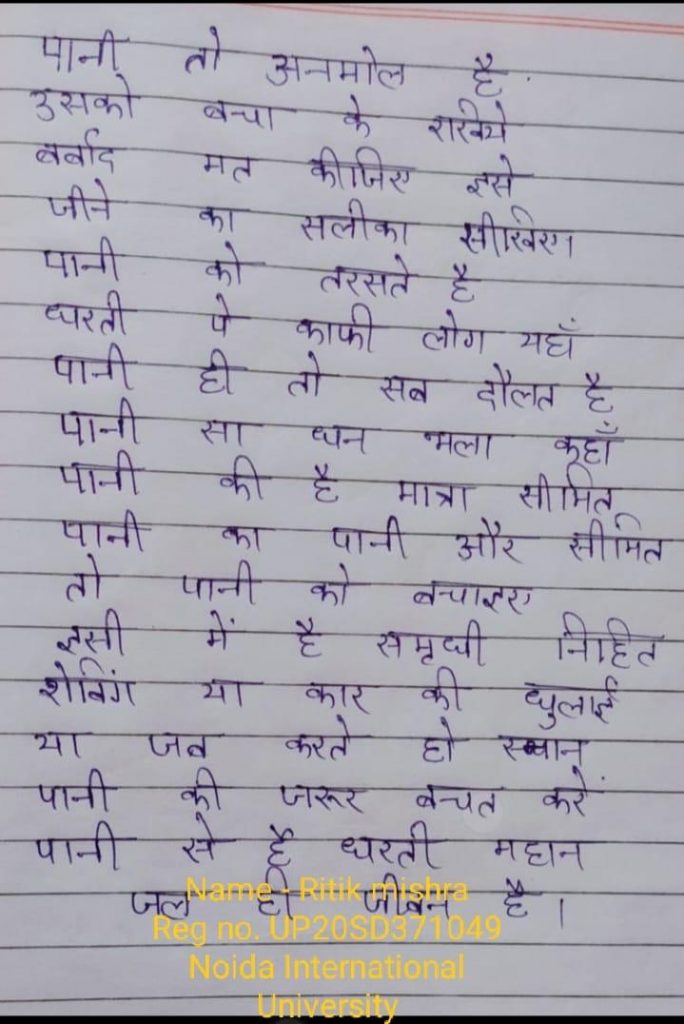 पानी तो अनमोल है
उसको बचा के राखिये
बर्बाद मत कीजिए इसे
जीने का सलीका सीखिए।
पानी को तरसते है
धरती पे काफी लोग यहाँ
पानी ही तो सब दौलत है
पानी सा धन भला कहाँ
पानी की है मात्रा सीमित
पानी का पानी और सीमित
तो पानी को बचाइए
इसी में है समृध्धी निहित
शेविंग या कार की धुलाई
या जब करते हो स्नान
पानी की जरूर बचत करें
पानी से है धरती महान
जल ही जीबन है।
Name - Ritik mishra
Reg no. UP20SD371049
Noida International
University